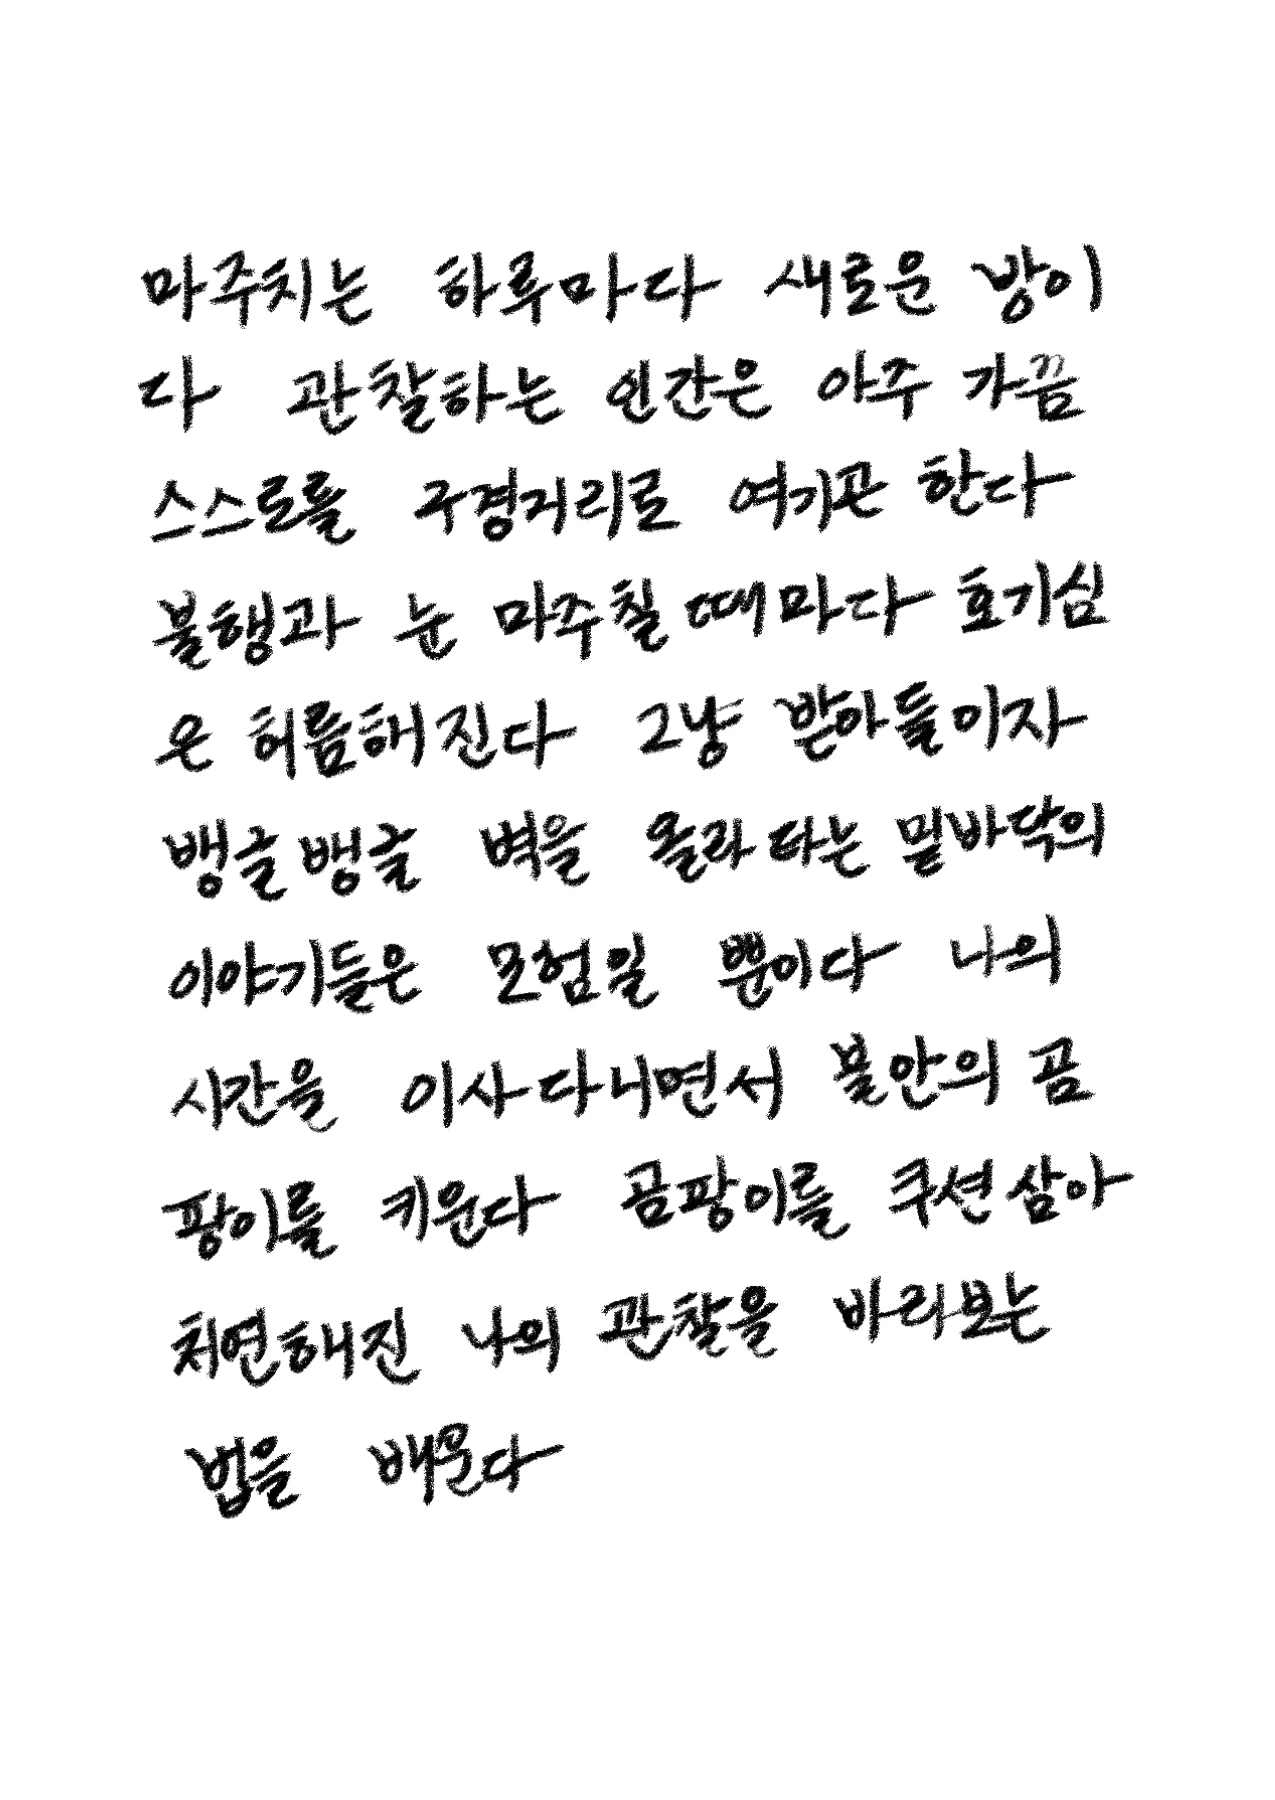 마주치는 하루마다 새로운 방이
다 관찰하는 인간은 아주 가끔
스스로를 구경거리로 여기곤 한다
불행과 눈 마주칠 때마다 호기심
은 허름해진다 그냥 받아들이자
뱅글뱅글 벽을 올라타는 밑바닥의
이야기들은 모험일 뿐이다 나의
시간을 이사다니면서 불안의 곰
팡이를 키운다 곰팡이를 쿠션삼아
처연해진 나의 관찰을 바라보는
법을 배운다